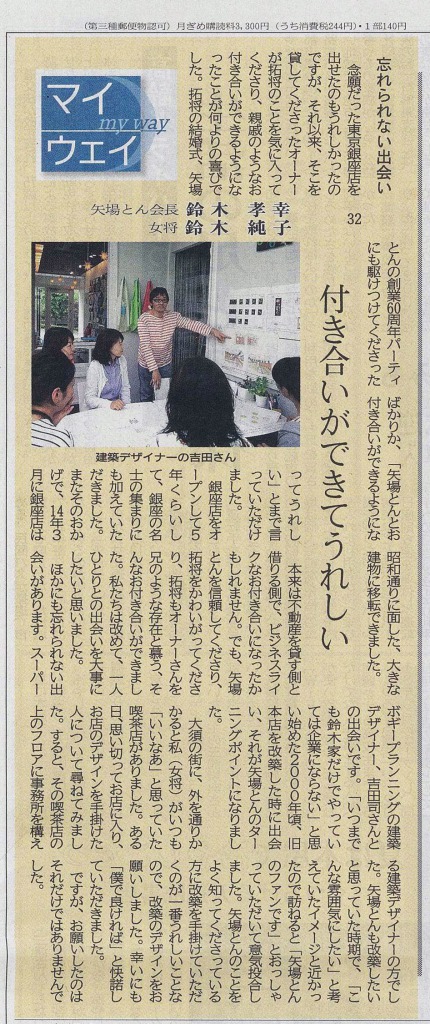 （第三種郵便物認可）月ぎめ購読料3,300円（うち消費税244円）・1部140円
マイ
my way
ウェイ
忘れられない出会い
念願だった東京銀座店を
出せたのもうれしかったの
ですが、それ以来、そこを
貸してくださったオーナー
が拓将のことを気に入って
くださり、親戚のようなお
付き合いができるようにな
ったことが何よりの喜びで
した。拓将の結婚式、矢場
32
矢場とん会長 鈴木 孝幸
女将 鈴木 純子
付き合いができてうれしい
とんの創業60周年パーティ
にも駆けつけてくださった
ばかりか、「矢場とんとお
付き合いができるようにな
ってうれし
い」とまで言
っていただけ
ました。
銀座店をオ
ープンして5
年くらいし
て、銀座の名
士の集まりに
も加えていた
だきました。
またそのおか
げで、14年3
月に銀座店は
建築デザイナーの吉田さん
昭和通りに面した、大きな
建物に移転できました。
本来は不動産を貸す側と
借りる側で、ビジネスライ
クなお付き合いになったか
もしれません。でも、矢場
とんを信頼してくださり、
拓将をかわいがってくださ
り、拓将もオーナーさんを
兄のような存在と慕う、そ
んなお付き合いができまし
た。私たちは改めて、一人
ひとりとの出会いを大事に
したいと思いました。
ほかにも忘れられない出
会いがあります。スーパー
ボギープランニングの建築
デザイナー、吉田司さんと
の出会いです。「いつまで
も鈴木家だけでやってい
ては企業にならない」と思
い始めた2000年頃、旧
本店を改築した時に出会
い、それが矢場とんのター
ニングポイントになりまし
た。
大須の街に、外を通りか
かると私（女将）がいつも
「いいなあ」と思っていた
喫茶店がありました。ある
日、思い切ってお店に入り、
お店のデザインを手掛けた
人について尋ねてみまし
た。すると、その喫茶店の
上のフロアに事務所を構え
る建築デザイナーの方でし
た。矢場とんも改築したい
と思っていた時期で、「こ
んな雰囲気にしたい」と考
えていたイメージと近かっ
たので訪ねると「矢場とん
のファンです」とおっしゃ
っていただいて意気投合し
ました。矢場とんのことを
よく知ってくださっている
方に改築を手掛けていただ
くのが一番うれしいことな
ので、改築のデザインをお
願いしました。幸いにも
「僕で良ければ」と快諾し
ていただきました。
ですが、お願いしたのは
それだけではありませんで
した。